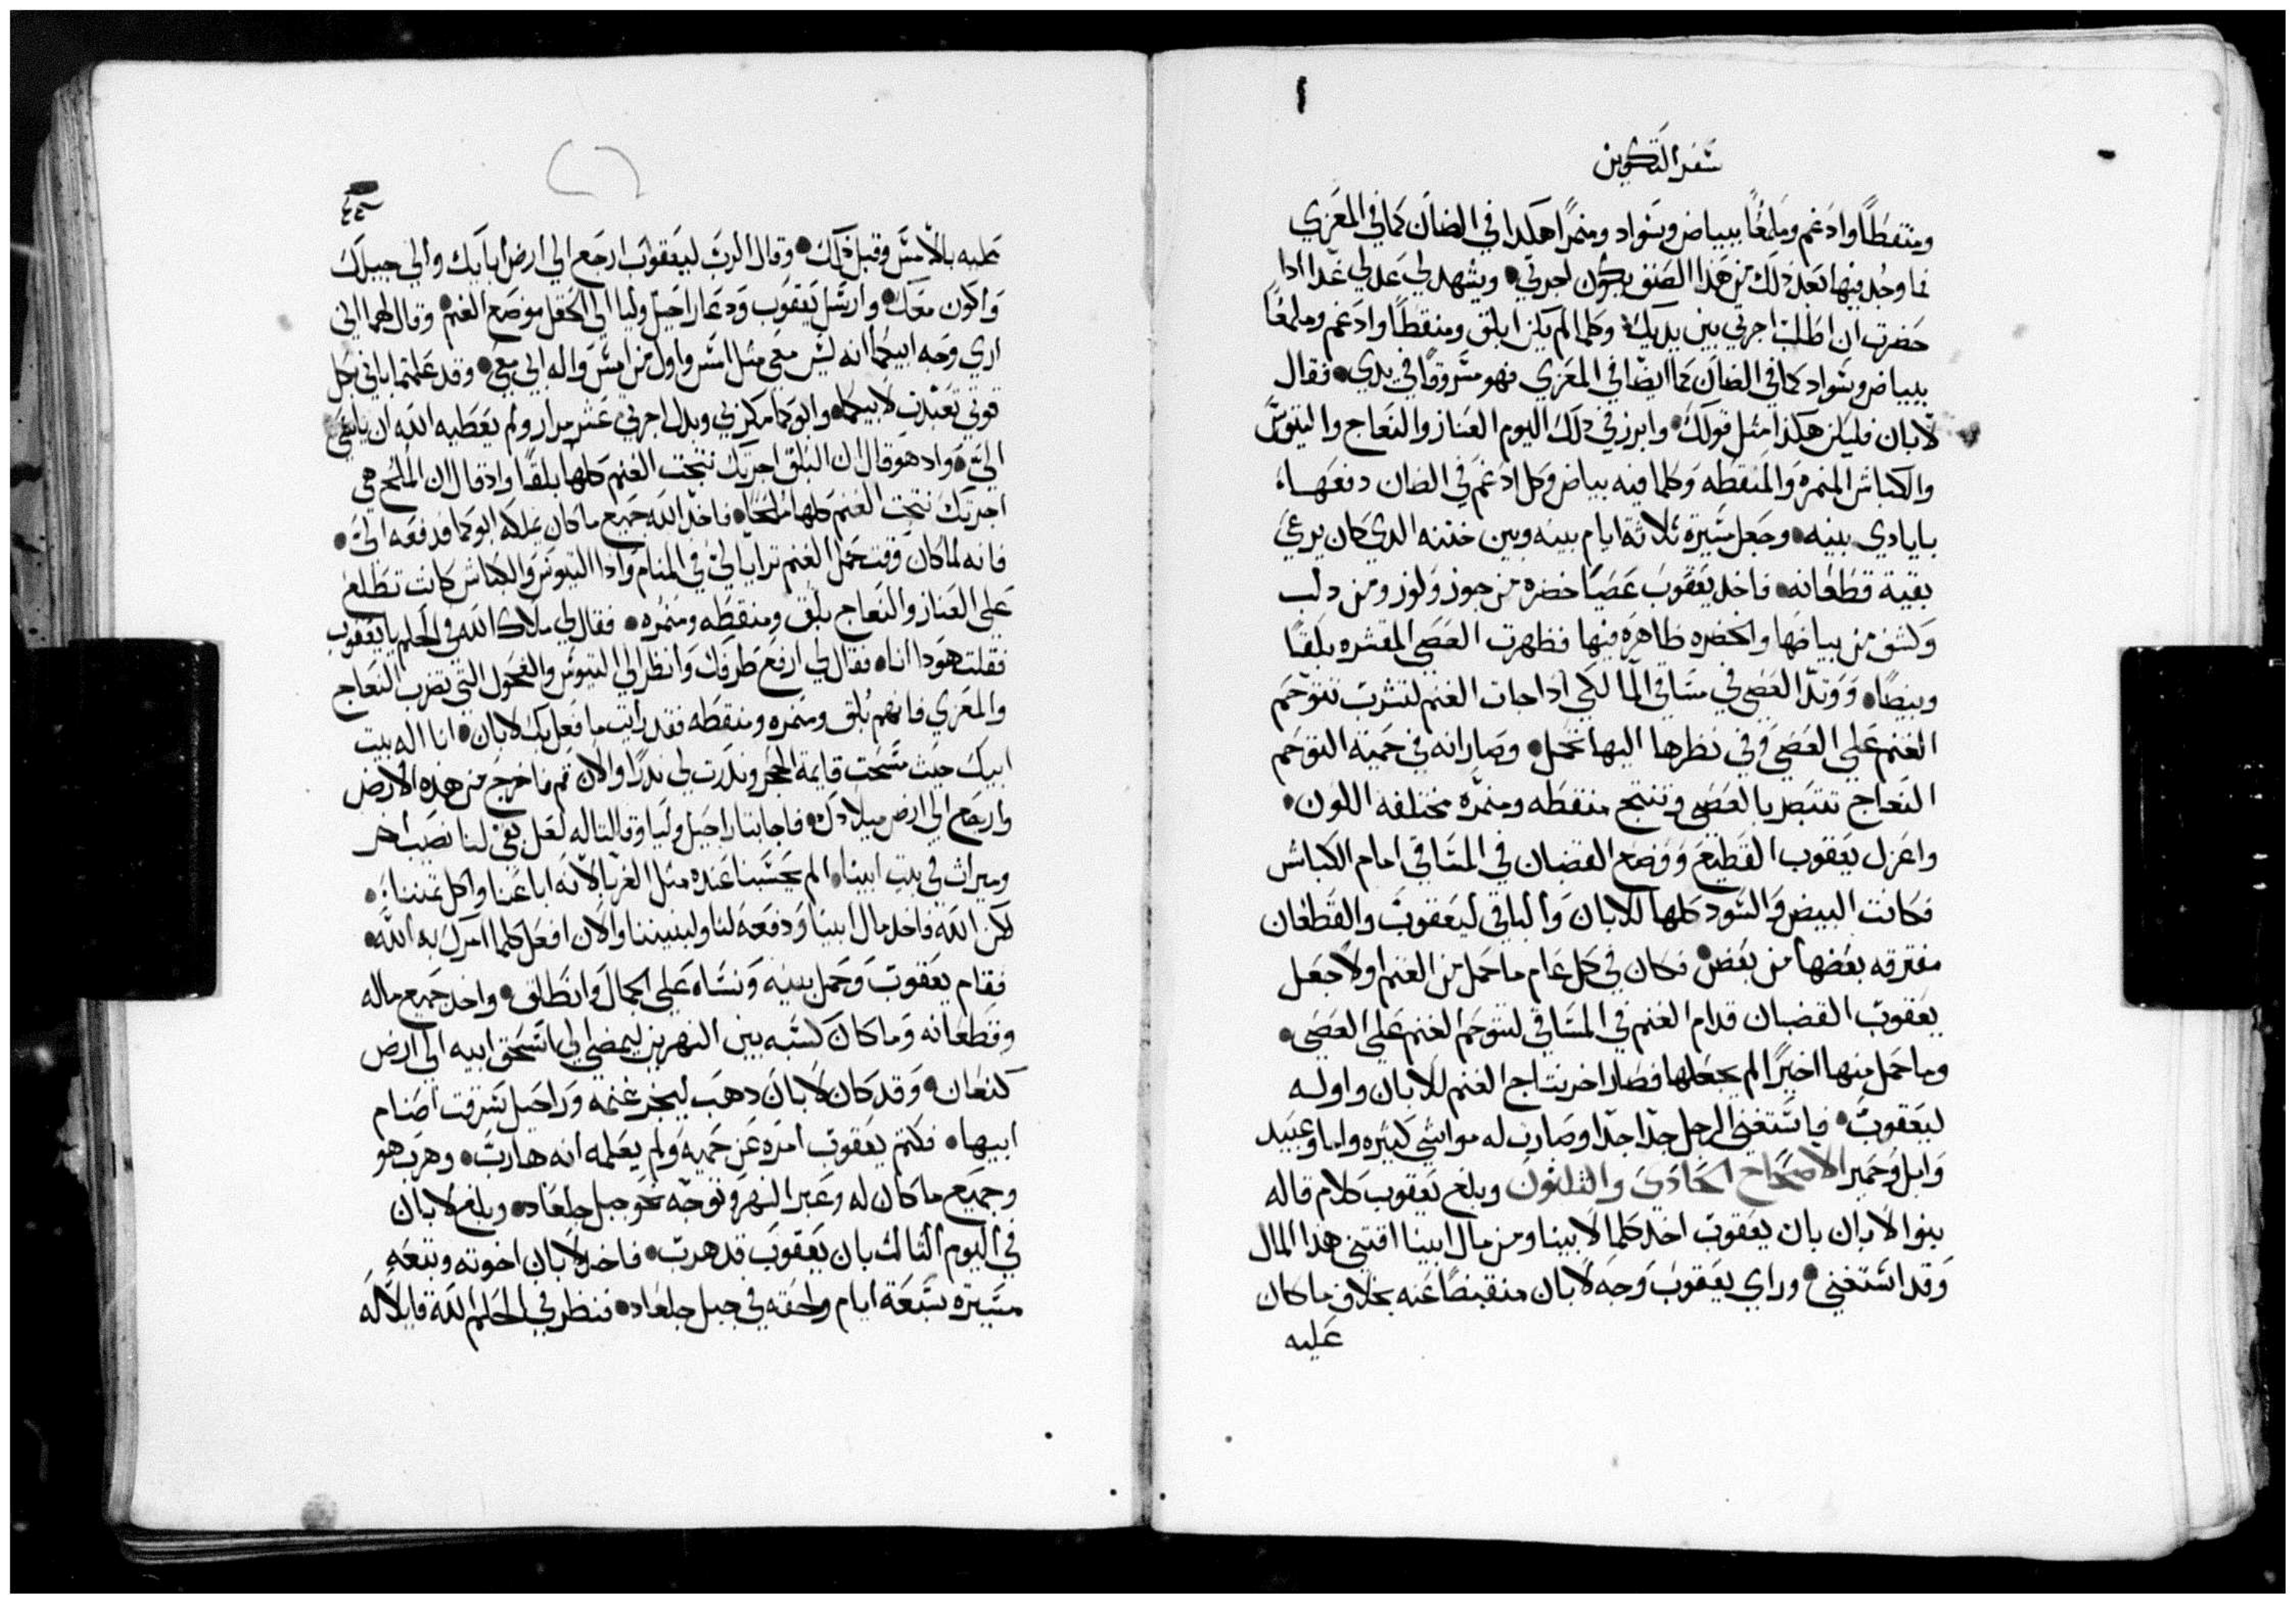 سفر التكوين
ومنقطًا وادغم وملمعًا ببياض وسواد ومنمرًا هكدا في الضان كما في المعزي
فما وجد بينها بعد ذلك من هذا الصنف يكون لجرتي ويشهد لي عدلي غدا ادا
حضرت ان اطلب اجرتي بين يديك وكلما لم يكن ابلق ومنقطًا وادغم وملمعًا
ببياض وسواد كما في الضان كما ايضا في المعزي فهو مسروقًا في يدي فقال
لابان فليكن هكذا مثل قولك وابرز في ذلك اليوم العناز والنعاج والتيوس
والكباش المنمره والمنقطه وكلما فيه بياض وكل ادغم في الضان دفعها
بايادي بنيه وجعل مسيرة ثلاثة ايام بينه وبين ختنه الدي كان يرعي
بقية قطعانه فاخد يعقوب عصيًا خضره من جوز ولوز ومن دلب
وكشف من بياضها والخضره ظاهره فيها فظهرت العصي المقشره بلقًا
وبيضًا ووتد العصي في مساقي الما لكي ادا جات الغنم لتشرب تتوحم
الغنم علي العصي وفي نظرها اليها تحمل وصار انه في حمية التوحم
النعاج تتبصر بالعصي وتنتج منقطه ومنمره مختلفة اللون
واعزل يعقوب القطيع ووضع القضبان في المساقي امام الكباش
فكانت البيض والسود كلها للابان والباقي ليعقوب والقطعان
مفترقه بعضها من بعض فكان في كل عام ما حمل من الغنم اولا جعل
يعقوب القضبان قدام الغنم في المساقي لتتوحم الغنم علي العصي
وما حمل منها اخيرًا لم يجعلها فصار اخر نتاج الغنم للابان واوله
ليعقوب فاستغني الرجل جدًا جدًا وصارت له مواشي كثيره واما وعبيد
وابل وحمير الاصحاح الحادي والثلثون وبلغ يعقوب كلام قاله
بنوا لابان بان يعقوب اخد كلما لابينا ومن مال ابينا اقتني هدا المال
وقد استغني وراي يعقوب وجه لابان منقبضًا عنه بخلاف ما كان
عليه
عليه بالامس وقبل ذلك وقال الرب ليعقوب ارجع الي ارض ابايك والي جيلك
واكون معك وارسل يعقوب ودعا راحيل وليا الي الحقل موضع الغنم وقال لهما اني
اري وجه ابيكما انه ليس معي مثل امس واول من امس واله ابي معي وقد علمتما باني بكل
قوتي تعبدت لابيكما وابوكما مكر بي وبدل اجرتي عشر مرار ولم يعطيه الله ان
الي واد هو قال ان البلق اجرتك نتجت الغنم كلها بلقًا واذ قال ان الملح هي
اجرتك نتجت الغنم كلها ملحًا فاخد الله جميع ما كان يملكه ابوكما فدفعه الي
فانه لما كان وقت حمل الغنم ترايا لي في المنام وادا التيوس والكباش كانت تطلع
علي العناز والنعاج بلق ومنقطه ومنمره فقال لي ملاك الله في الحلم يا يعقوب
فقلت هودا انا فقال لي ارفع طرفك وانظر الي التيوس والفحول التي تضرب النعاج
والمعزي فانهم بلق ومنمره ومنقطه فقد رايت ما فعل بك لابان انا اله بيت
ايل حيث مسحت قايمة الحجر وندرت لي ندرًا والان قم فاخرج من هذه الارض
وارجع الي ارض ميلادك فاجابتا راحيل وليا وقالتا له لعل بقي لنا نصيب اخر
وميراث في بيت ابينا الم يحسبنا عنده مثل الغربا لانه اباعنا واكل ثمننا
لكن الله فاخد مال ابينا ودفعه لنا ولبنيننا والان افعل كلما امرك به الله
فقام يعقوب وحمل بنيه ونساه علي الجمال وانطلق واخد جميع ماله
وقطعانه وما كان كسبه بين النهرين ليمضي الي اسحق ابيه الي ارض
كنعان وقد كان لابان دهب ليجز غنمه وراحيل سرقت اصنام
ابيها فكتم يعقوب امره عن حميه ولم يعلمه انه هارب وهرب هو
وجميع ما كان له وعبر النهر وتوجه نحو جبل جلعاد وبلغ لابان
في اليوم الثالث بان يعقوب قد هرب فاخد لابان اخوته وتبعه
مسيرة سبعة ايام ولحقه في جبل جلعاد فنظر في الحلم الله قايلًا له